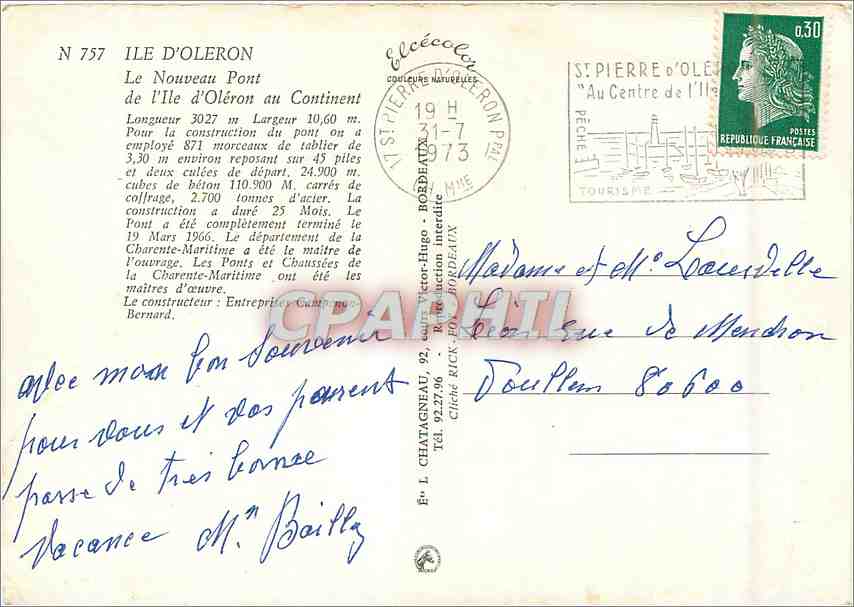 N 757 ILE D'OLERON
Le Nouveau Pont
de l'Ile d'Oléron au Continent
Longueur 3027 m Largeur 10,60 m.
Pour la construction du pont on a
employé 871 morceaux de tablier de
3,30 m environ reposant sur 45 piles
et deux culées de départ, 24.900 m.
cubes de béton 110.900 M. carrés de
coffrage, 2.700 tonnes d'acier. La
construction a duré 25 Mois. Le
Pont a été complètement terminé le
19 Mars 1966. Le département de la
Charente-Maritime a été le maître de
l'ouvrage. Les Ponts et Chaussées de
la Charente-Maritime ont été les
maîtres d'œuvre.
Le constructeur : Entreprises Campenon-
Bernard.
avec mon bon Souvenir
pour vous et vos parent
passe de très bonne
vacance Mn Bailly
Elcécolor
COULEURS NATURELLES
17 ST PIERRE D'OLERON PPAL
19 H
31-7
1973
CH. MME
ST PIERRE D'OLE
"Au Centre de l'Ile
PÊCHE
TOURISME
0,30
POSTES
REPUBLIQUE FRANÇAISE
Éts L. CHATAGNEAU, 92, cours Victor-Hugo - BORDEAUX
Tél. 92.27.96 - Reproduction interdite
Cliché RICK-FOT BORDEAUX
Madame et Mr
rue de
Doullens 80600
CPAPHIL